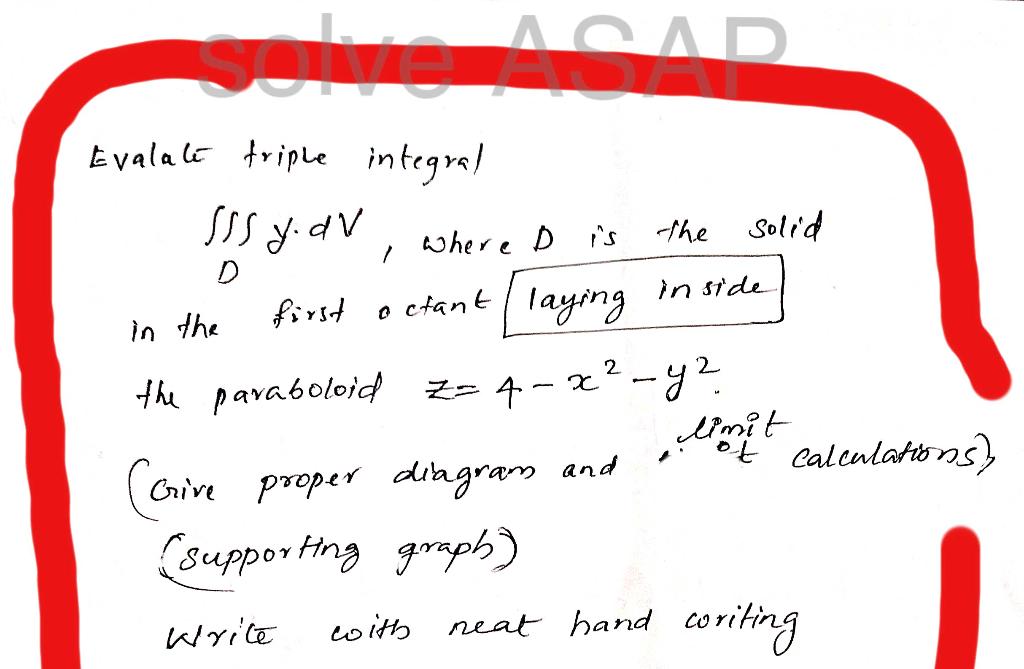 solve ASAP
Evalate triple integral
∭ y.dV, where D is the solid
D
in the first octant laying inside
the paraboloid z = 4 - x² - y².
(Give proper diagram and limit of calculations),
(supporting graph)
Write with neat hand coriting